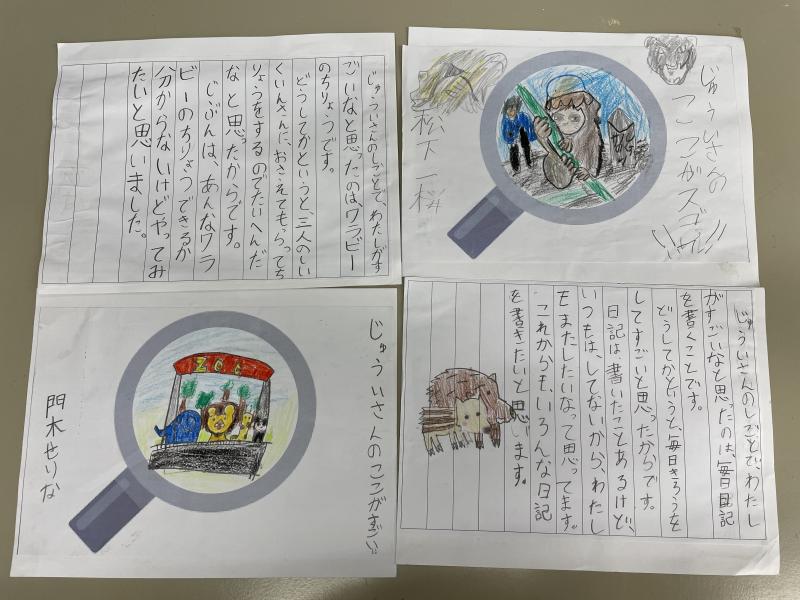 じゅういさんのしごとで、わたしがす
ごいなと思ったのは、ワラビー
のちりょうです。
どうしてかというと、三人のしい
くいんさんに、おさえてもらってち
りょうをするのでたいへんだ
なと思ったからです。
じぶんは、あんなワラ
ビーのちりょうできるか
分からないけどやってみ
たいと思いました。
じゅういさんの
ここがスゴイ!!
松下一桜
じゅういさんのここがすごい
ZOO
門木せりな
じゅういさんのしごとで、わたし
がすごいなと思ったのは、毎日日記
を書くことです。
どうしてかというと、毎日きろうを
してすごいと思ったからです。
日記は、書いたことあるけど、
いつもは、してないから、わたし
もまたしたいなって思ってます。
これからも、いろんな日記
を書きたいと思います。